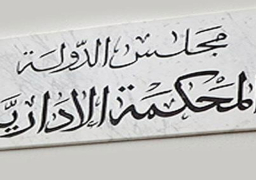 مجلس الدولة
المحكمة الإدارية